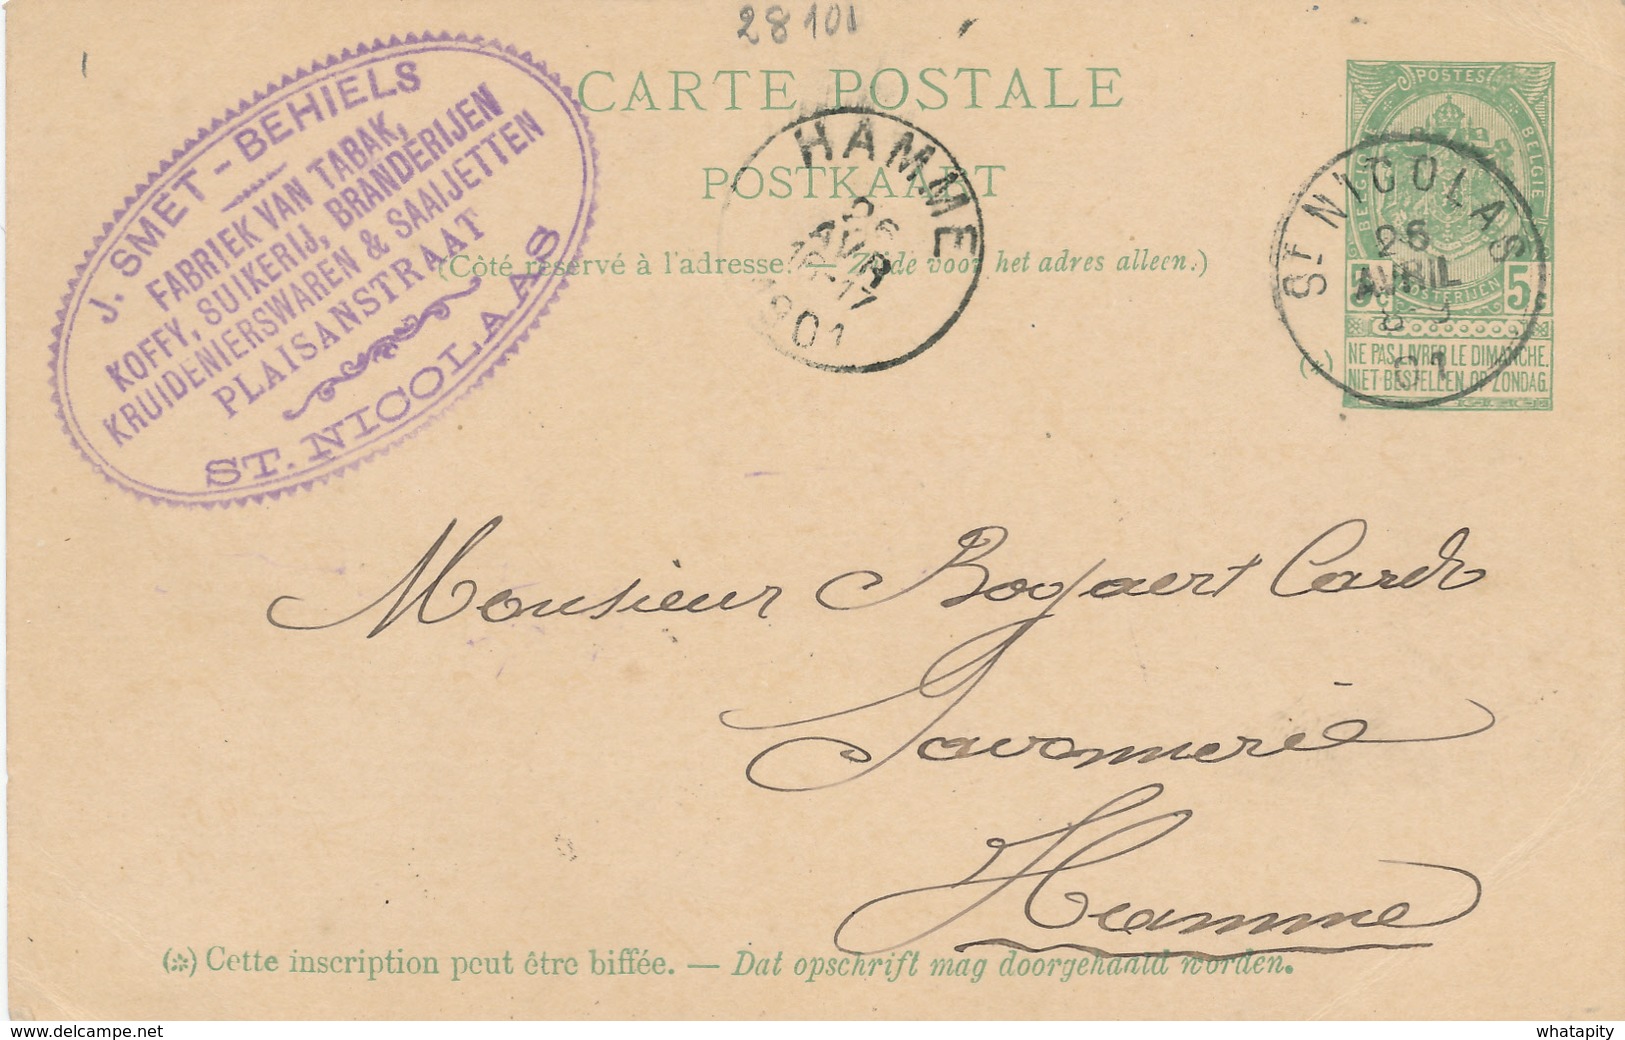 28 10
CARTE POSTALE
POSTKAART
(Côté réservé à l'adresse. — Zijde voor het adres alleen.)
J. SMET-BEHIELS
FABRIEK VAN TABAK,
KOFFY, SUIKERIJ, BRANDERIJEN
KRUIDENIERSWAREN & SAAIJETTEN
PLAISANSTRAAT
ST. NICOLAAS
HAMME
26
AVR
1901
POSTES
BELGIQUE
BELGIE
POSTERIJEN
5c 5c
NE PAS LIVRER LE DIMANCHE.
NIET BESTELLEN OP ZONDAG.
(*)
ST NICOLAS
26
AVRIL
01
Monsieur Bogaert Card
Savonnerie
Hamme
(*) Cette inscription peut être biffée. — Dat opschrift mag doorgehaald worden.
whatapity